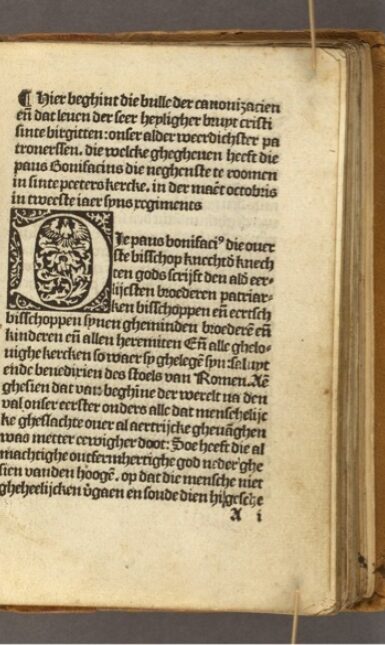 ¶ Hier beghint die bulle der canonizacien
en̄ dat leuen der seer heyligher bruyt cristi
sinte birgitten: onser alder weerdichster pa
tronerssen. die welcke ghegheuen heeft die
paus Bonifacius die neghenste te roomen
in sinte peeters kercke. in der maēt octobris
in tweeste iaer syns regiments
DIe paus bonifaci⁹ die ouer
ste bisschop knechtō knech
ten gods scrijft den alō eer-
lijcsten broederen patriar-
ken bisschoppen en̄ eertsch
bisschoppen synen gheminden broederē en̄
kinderen en̄ allen heremiten En̄ alle ghelo-
uighe kercken so waer sy ghelegē syn: saluyt
ende benedixien des stoels van Romen. Aē
ghesien dat vaⁿ beghīne der werelt na den
val onser eerster onders alle dat menschelijc
ke gheslachte ouer al aertrijcke gheuāghen
was metter eewigher doot: Soe heeft die al
machtighe ontfermhertighe god neder ghe
sien vanden hooge. op dat die mensche niet
gheheelijcken v̄gaen en soude dien hi
A i